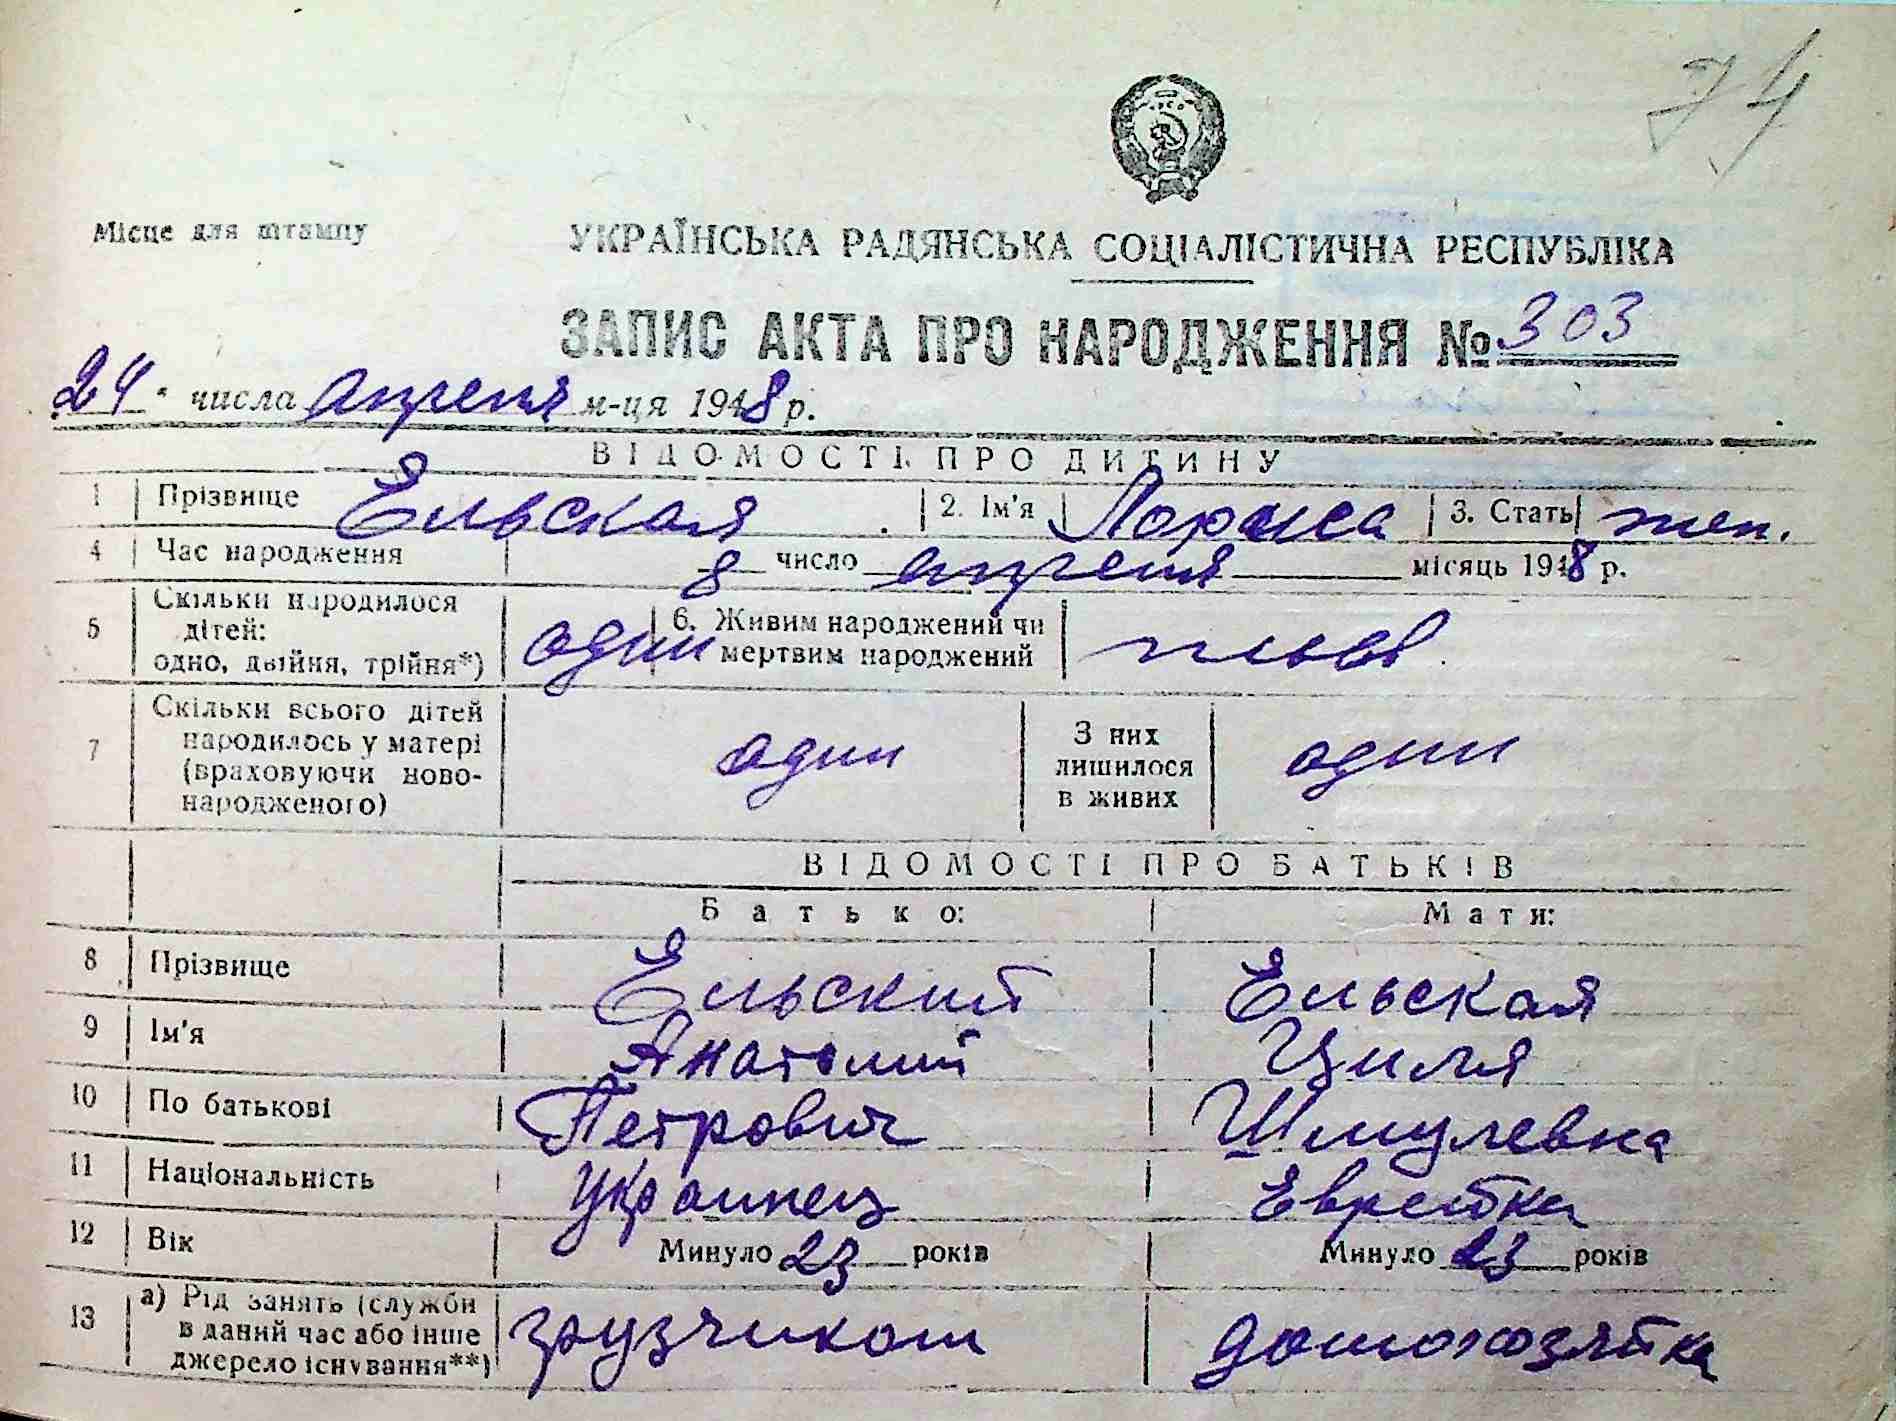 74
Місце для штампу
УКРАЇНСЬКА РАДЯНСЬКА СОЦІАЛІСТИЧНА РЕСПУБЛІКА
ЗАПИС АКТА ПРО НАРОДЖЕННЯ № 303
24 " числа апреля м-ця 1948 р.
ВІДОМОСТІ ПРО ДИТИНУ
1 Прізвище Ельская 2. Ім'я Лариса 3. Стать жен.
4 Час народження 8 число апреля місяць 1948 р.
5 Скільки народилося дітей: одно, двійня, трійня*) один 6. Живим народжений чи мертвим народжений
7 Скільки всього дітей народилось у матері (враховуючи ново-народженого) один З них лишилося в живих один
ВІДОМОСТІ ПРО БАТЬКІВ
Батько: Мати:
8 Прізвище Ельский Ельская
9 Ім'я Анатолий Циля
10 По батькові Петрович Шмулевна
11 Національність Украинец Еврейка
12 Вік Минуло 23 років Минуло 23 років
13 а) Рід занять (служби в даний час або інше джерело існування**) грузчиком домохозяйка